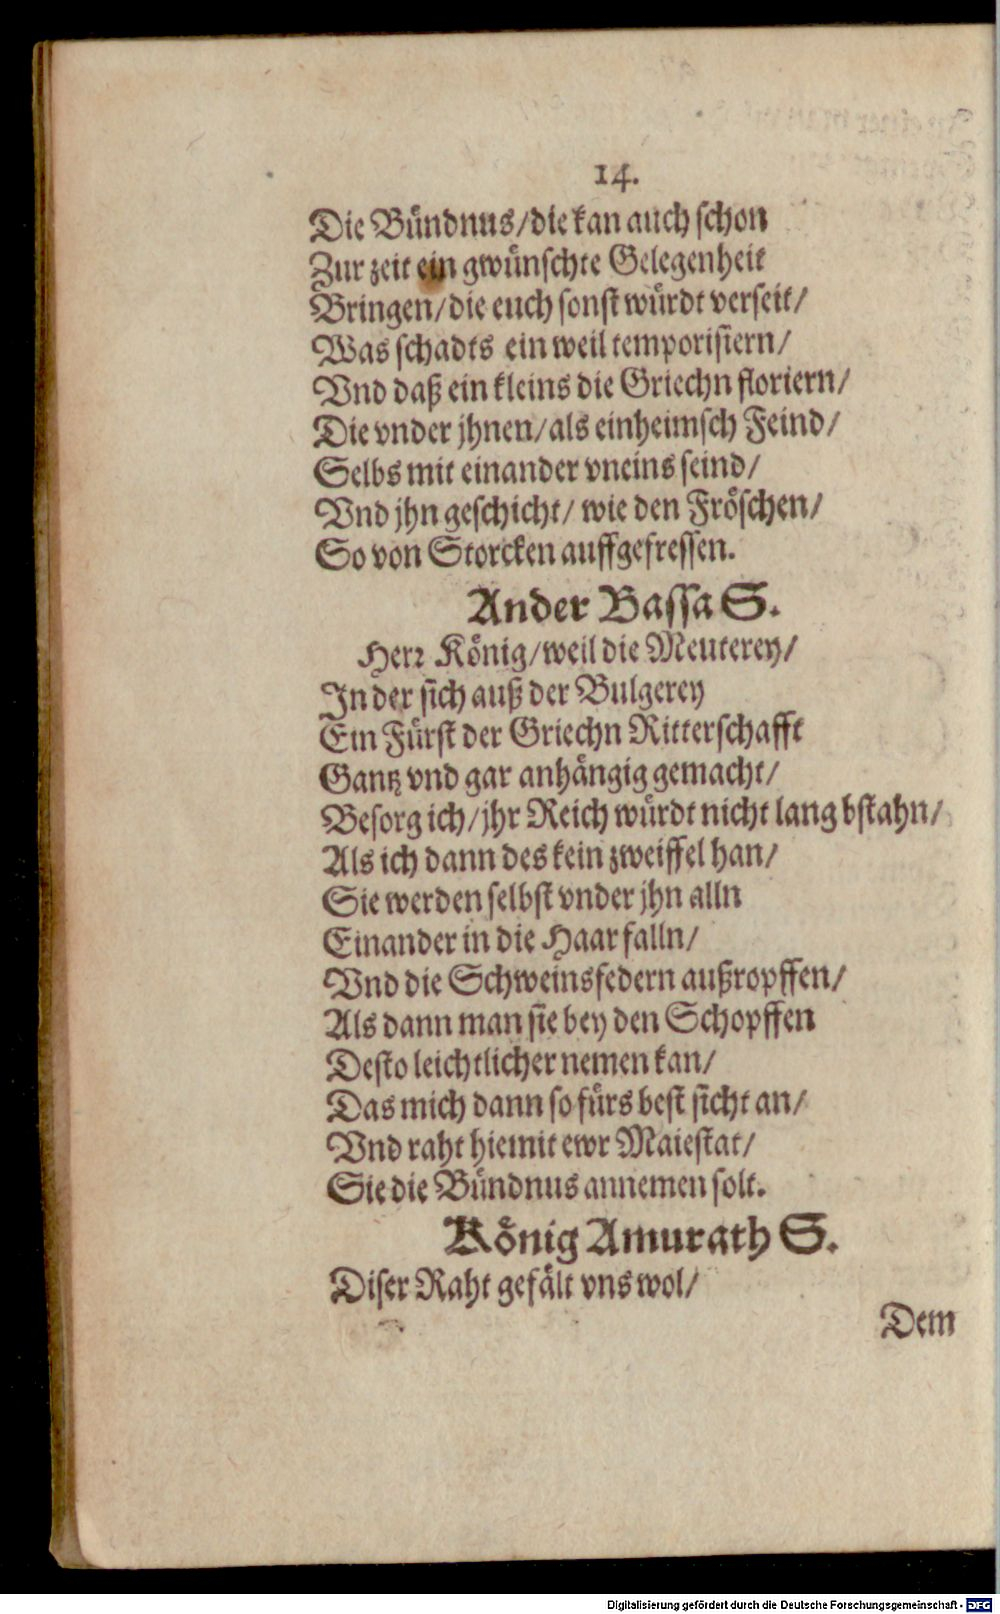 14.
Die Bündnus/die kan auch schon
Zur zeit ein gwünschte Gelegenheit
Bringen/die euch sonst würdt verseit/
Was schadts ein weil temporisiern/
Vnd daß ein kleins die Griechn floriern/
Die vnder jhnen/als einheimsch Feind/
Selbs mit einander vneins seind/
Vnd jhn geschicht/ wie den Fröschen/
So von Storcken auffgefressen.
Ander Bassa S.
Herr König/weil die Meuterey/
In der sich auß der Bulgerey
Ein Fürst der Griechn Ritterschafft
Gantz vnd gar anhängig gemacht/
Besorg ich/jhr Reich würdt nicht lang bstahn/
Als ich dann des kein zweiffel han/
Sie werden selbst vnder jhn alln
Einander in die Haar falln/
Vnd die Schweinsfedern außropffen/
Als dann man sie bey den Schopffen
Desto leichtlicher nemen kan/
Das mich dann so fürs best sicht an/
Vnd raht hiemit ewr Maiestat/
Sie die Bündnus annemen solt.
König Amurath S.
Diser Raht gefält vns wol/
Dem
Digitalisierung gefördert durch die Deutsche Forschungsgemeinschaft - DFG